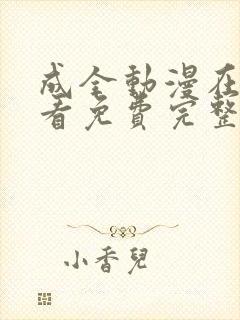 成全動漫在
看免費完整
小香兒